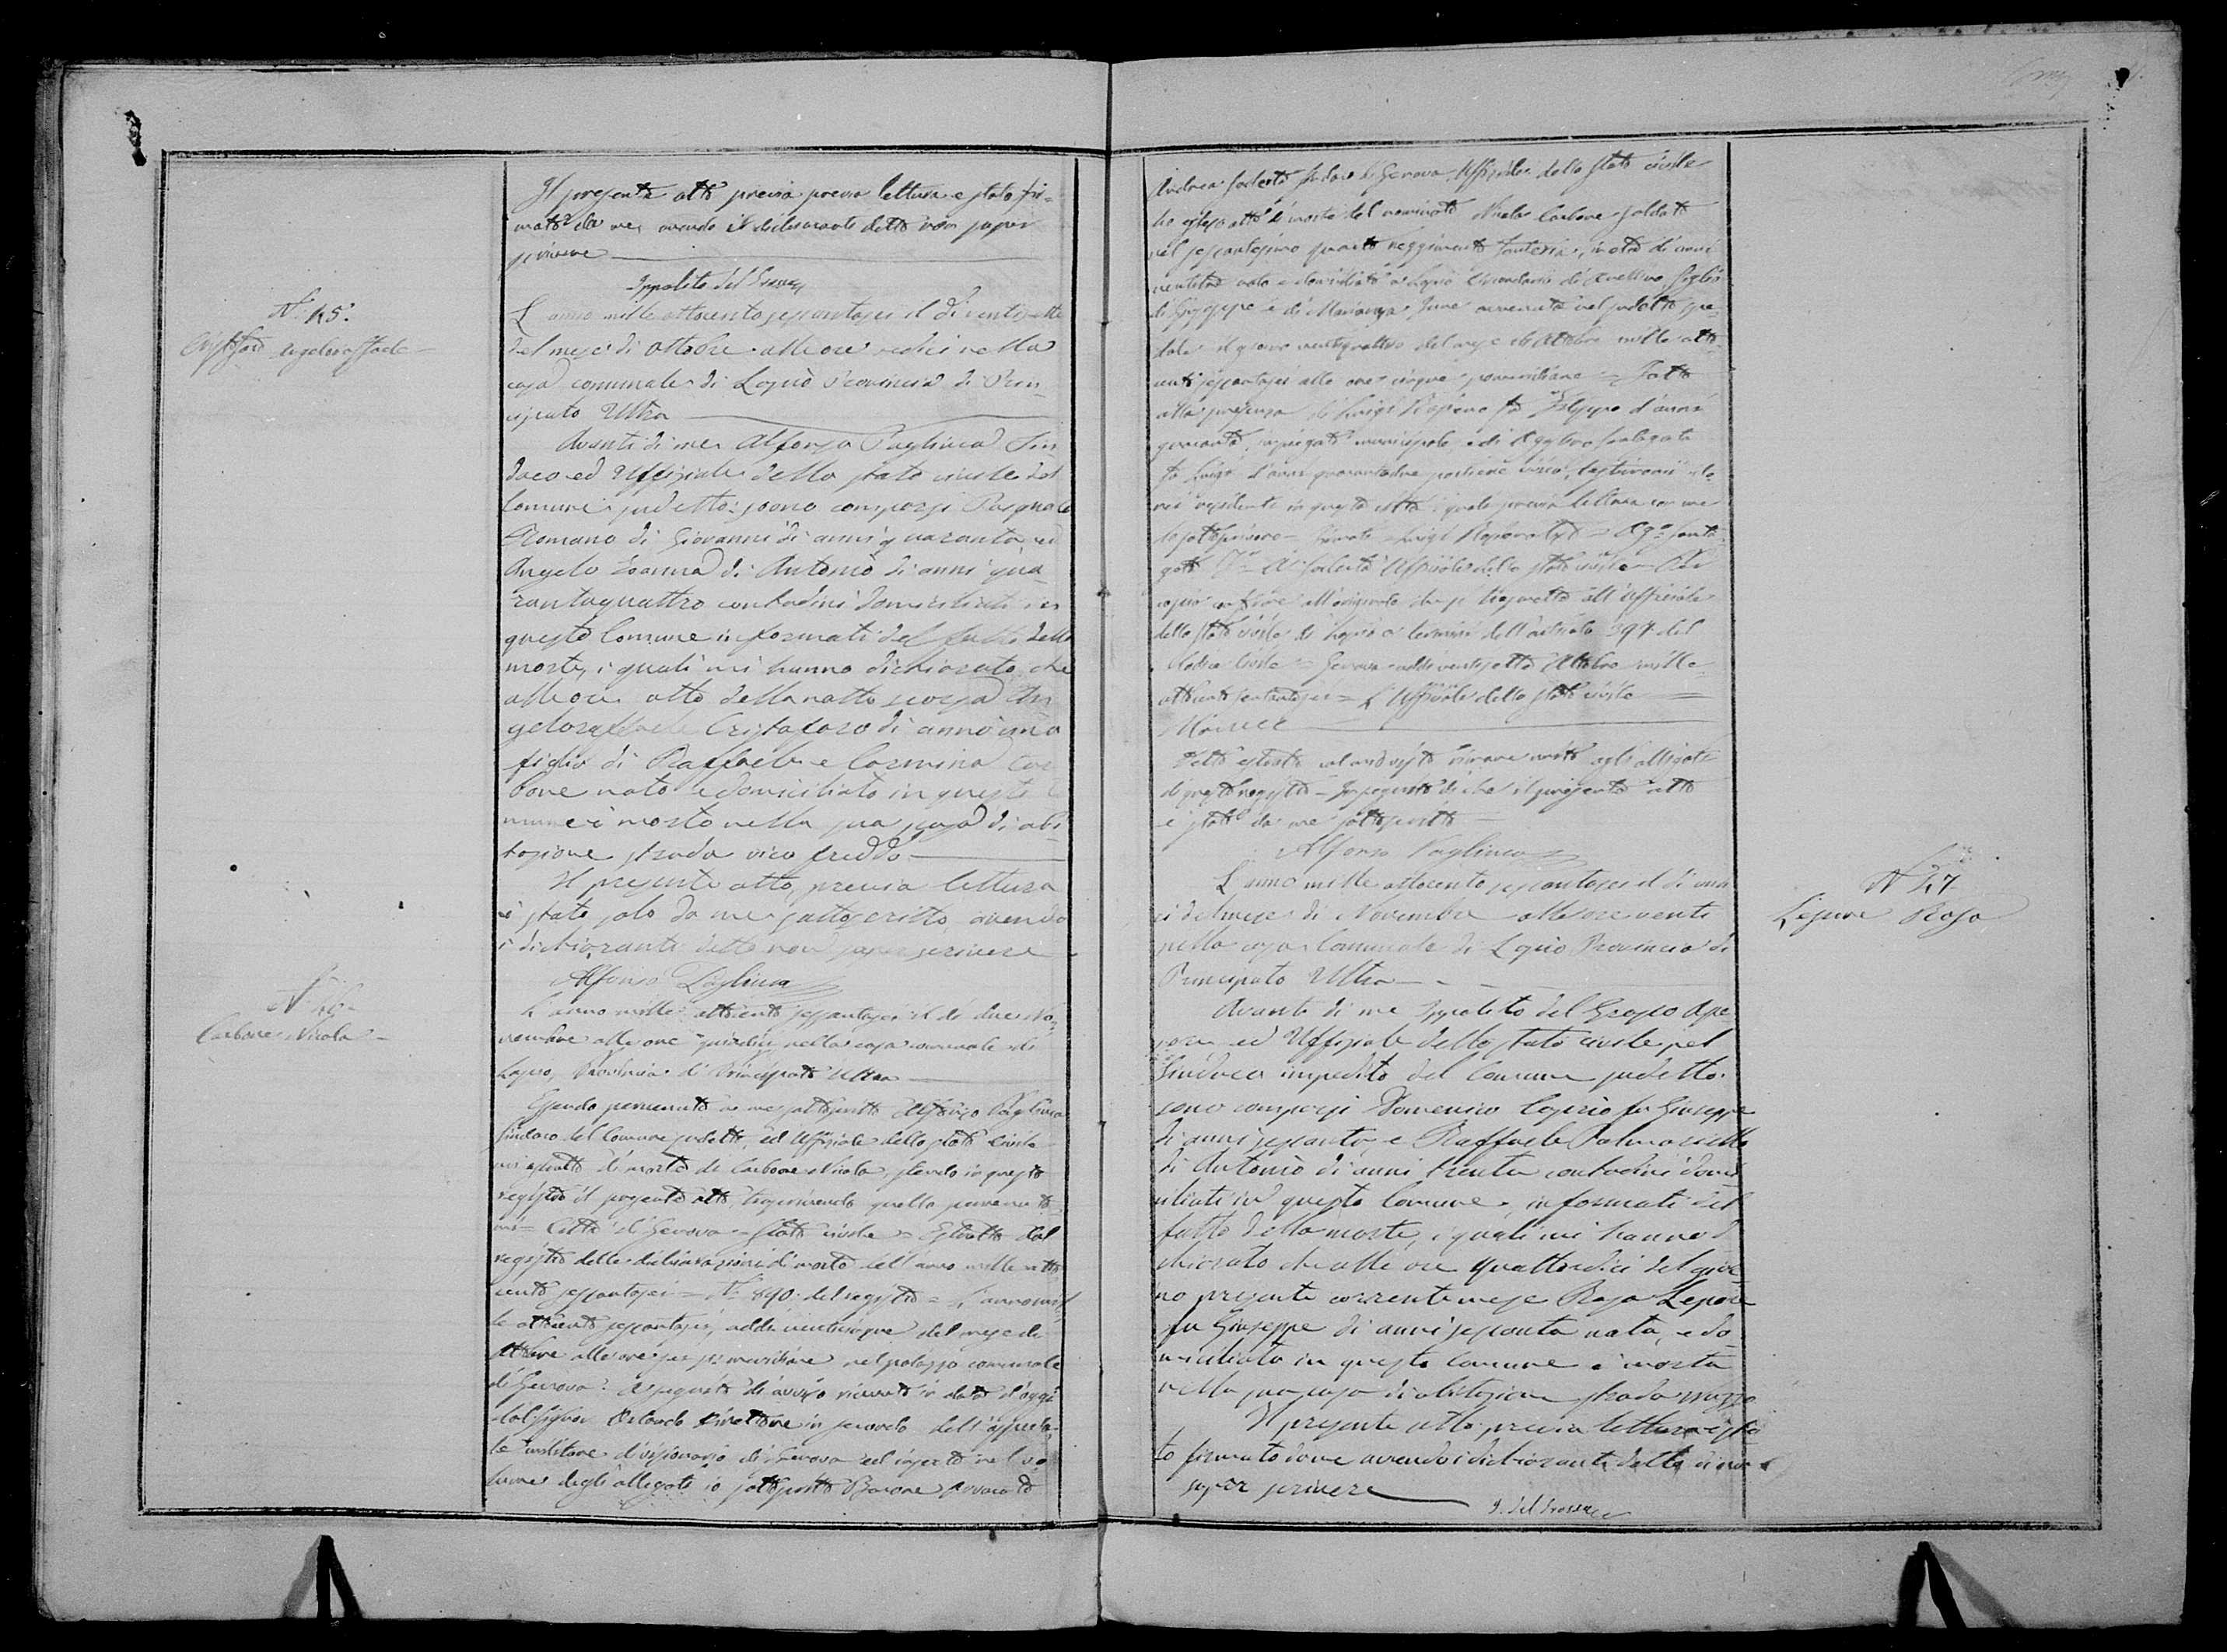 Il presente atto previa lettura è stato fir-
mato da me, avendo il dichiarante detto non saper
scrivere
Ippolito del Grosso
N° 45.
Angelo
L'anno mille ottocento sessantasei il dì ventisette
del mese di Ottobre alle ore sedici nella
casa comunale di Lapio Provincia di Prin-
cipato Ultra
Avanti di me Alfonso Pagliuca Sin
daco ed Uffiziale dello stato civile del
Comune sudetto sono comparsi Pasquale
Romano di Giovanni di anni quaranta ed
Angelo di Antonio di anni qua
rantaquattro contadini domiciliati in
questo Comune informati del fatto della
morte, i quali mi hanno dichiarato che
alle ore otto della notte scorsa An
geloraffaele Cristofaro di anni uno
figlio di Raffaele e Carmina Car
bone nato e domiciliato in questo Co
mune è morto nella sua casa di abi
tazione strada vico freddo
Il presente atto, previa lettura
è stato solo da me sottoscritto avendo
i dichiaranti detto non saper scrivere
Alfonso Pagliuca
N° 46
Carbone Nicola
L'anno mille ottocento sessantasei il dì due No
vembre alle ore quindici nella casa comunale di
Lapio, Provincia di Principato Ultra
Essendo pervenuto a me sottoscritto Alfonso Pagliuca
Sindaco del Comune sudetto, ed Uffiziale dello stato Civile
estratto di morte di Carbone Nicola, stendo in questo
registro il presente atto, trascrivendo quello pervenuto
mi = Città di Genova = Stato civile = Estratto dal
registro delle dichiarazioni di morte dell'anno mille otto
cento sessantasei = N° 890 del registro = L'anno mil
le ottocento sessantasei, addì venticinque del mese di
Ottobre alle ore pomeridiane nel palazzo comunale
di Genova. A seguito di avviso ricevuto in data d'oggi
dal Signor Direttore in secondo dell'ospeda
le militare divisionario di Genova ed inserto nel vo
lume degli allegati io sottoscritto Barone Avvocato
Andrea Podestà Sindaco di Genova Uffiziale dello stato civile
ho esteso atto di morte del nominato Nicola Carbone soldato
nel sessantesimo quarto reggimento fanteria, in età di anni
nato e domiciliato a Lapio Circondario di Avellino figlio
di Giuseppe e di Marianna avvenuta nel sudetto spe
dale il giorno ventiquattro del mese di Ottobre mille otto
cento sessantasei alle ore cinque pomeridiane = Fatto
alla presenza di Luigi fu Filippo d'anni
quaranta, impiegato municipale e di
fu Luigi d'anni quarantadue testimoni
residenti in questa città i quali previa lettura con me
lo sottoscrivono = Firmati = Luigi
Podestà Uffiziale dello stato civile = Per
copia conforme all'originale che si trasmette all'Uffiziale
dello stato civile di Lapio a termini dell'articolo 397 del
Codice Civile = Genova addì ventisette Ottobre mille
ottocento sessantasei = L'Uffiziale dello stato civile =
Detto estratto rimane unito agli allegati
di questo registro = In seguito di che il presente atto
è stato da me sottoscritto
Alfonso Pagliuca
N° 47
Lepore Rosa
L'anno mille ottocento sessantasei il dì
del mese di Novembre alle ore venti
nella casa Comunale di Lapio Provincia di
Principato Ultra
Avanti di me Ippolito del Grosso Asses
sore ed Uffiziale dello stato civile pel
Sindaco impedito del Comune sudetto.
sono comparsi Domenico Caprio fu Giuseppe
di anni sessanta, e Raffaele Palmariello
di Antonio di anni trenta contadini domi
ciliati in questo Comune, informati del
fatto della morte, i quali mi hanno di
chiarato che alle ore quattordici del gior
no presente corrente mese Rosa Lepore
fu Giuseppe di anni sessanta nata, e do
miciliata in questo Comune è morta
nella sua casa di abitazione strada
Il presente atto previa lettura è sta
to firmato da me avendo i dichiaranti detto di non
saper scrivere
I. del Grosso